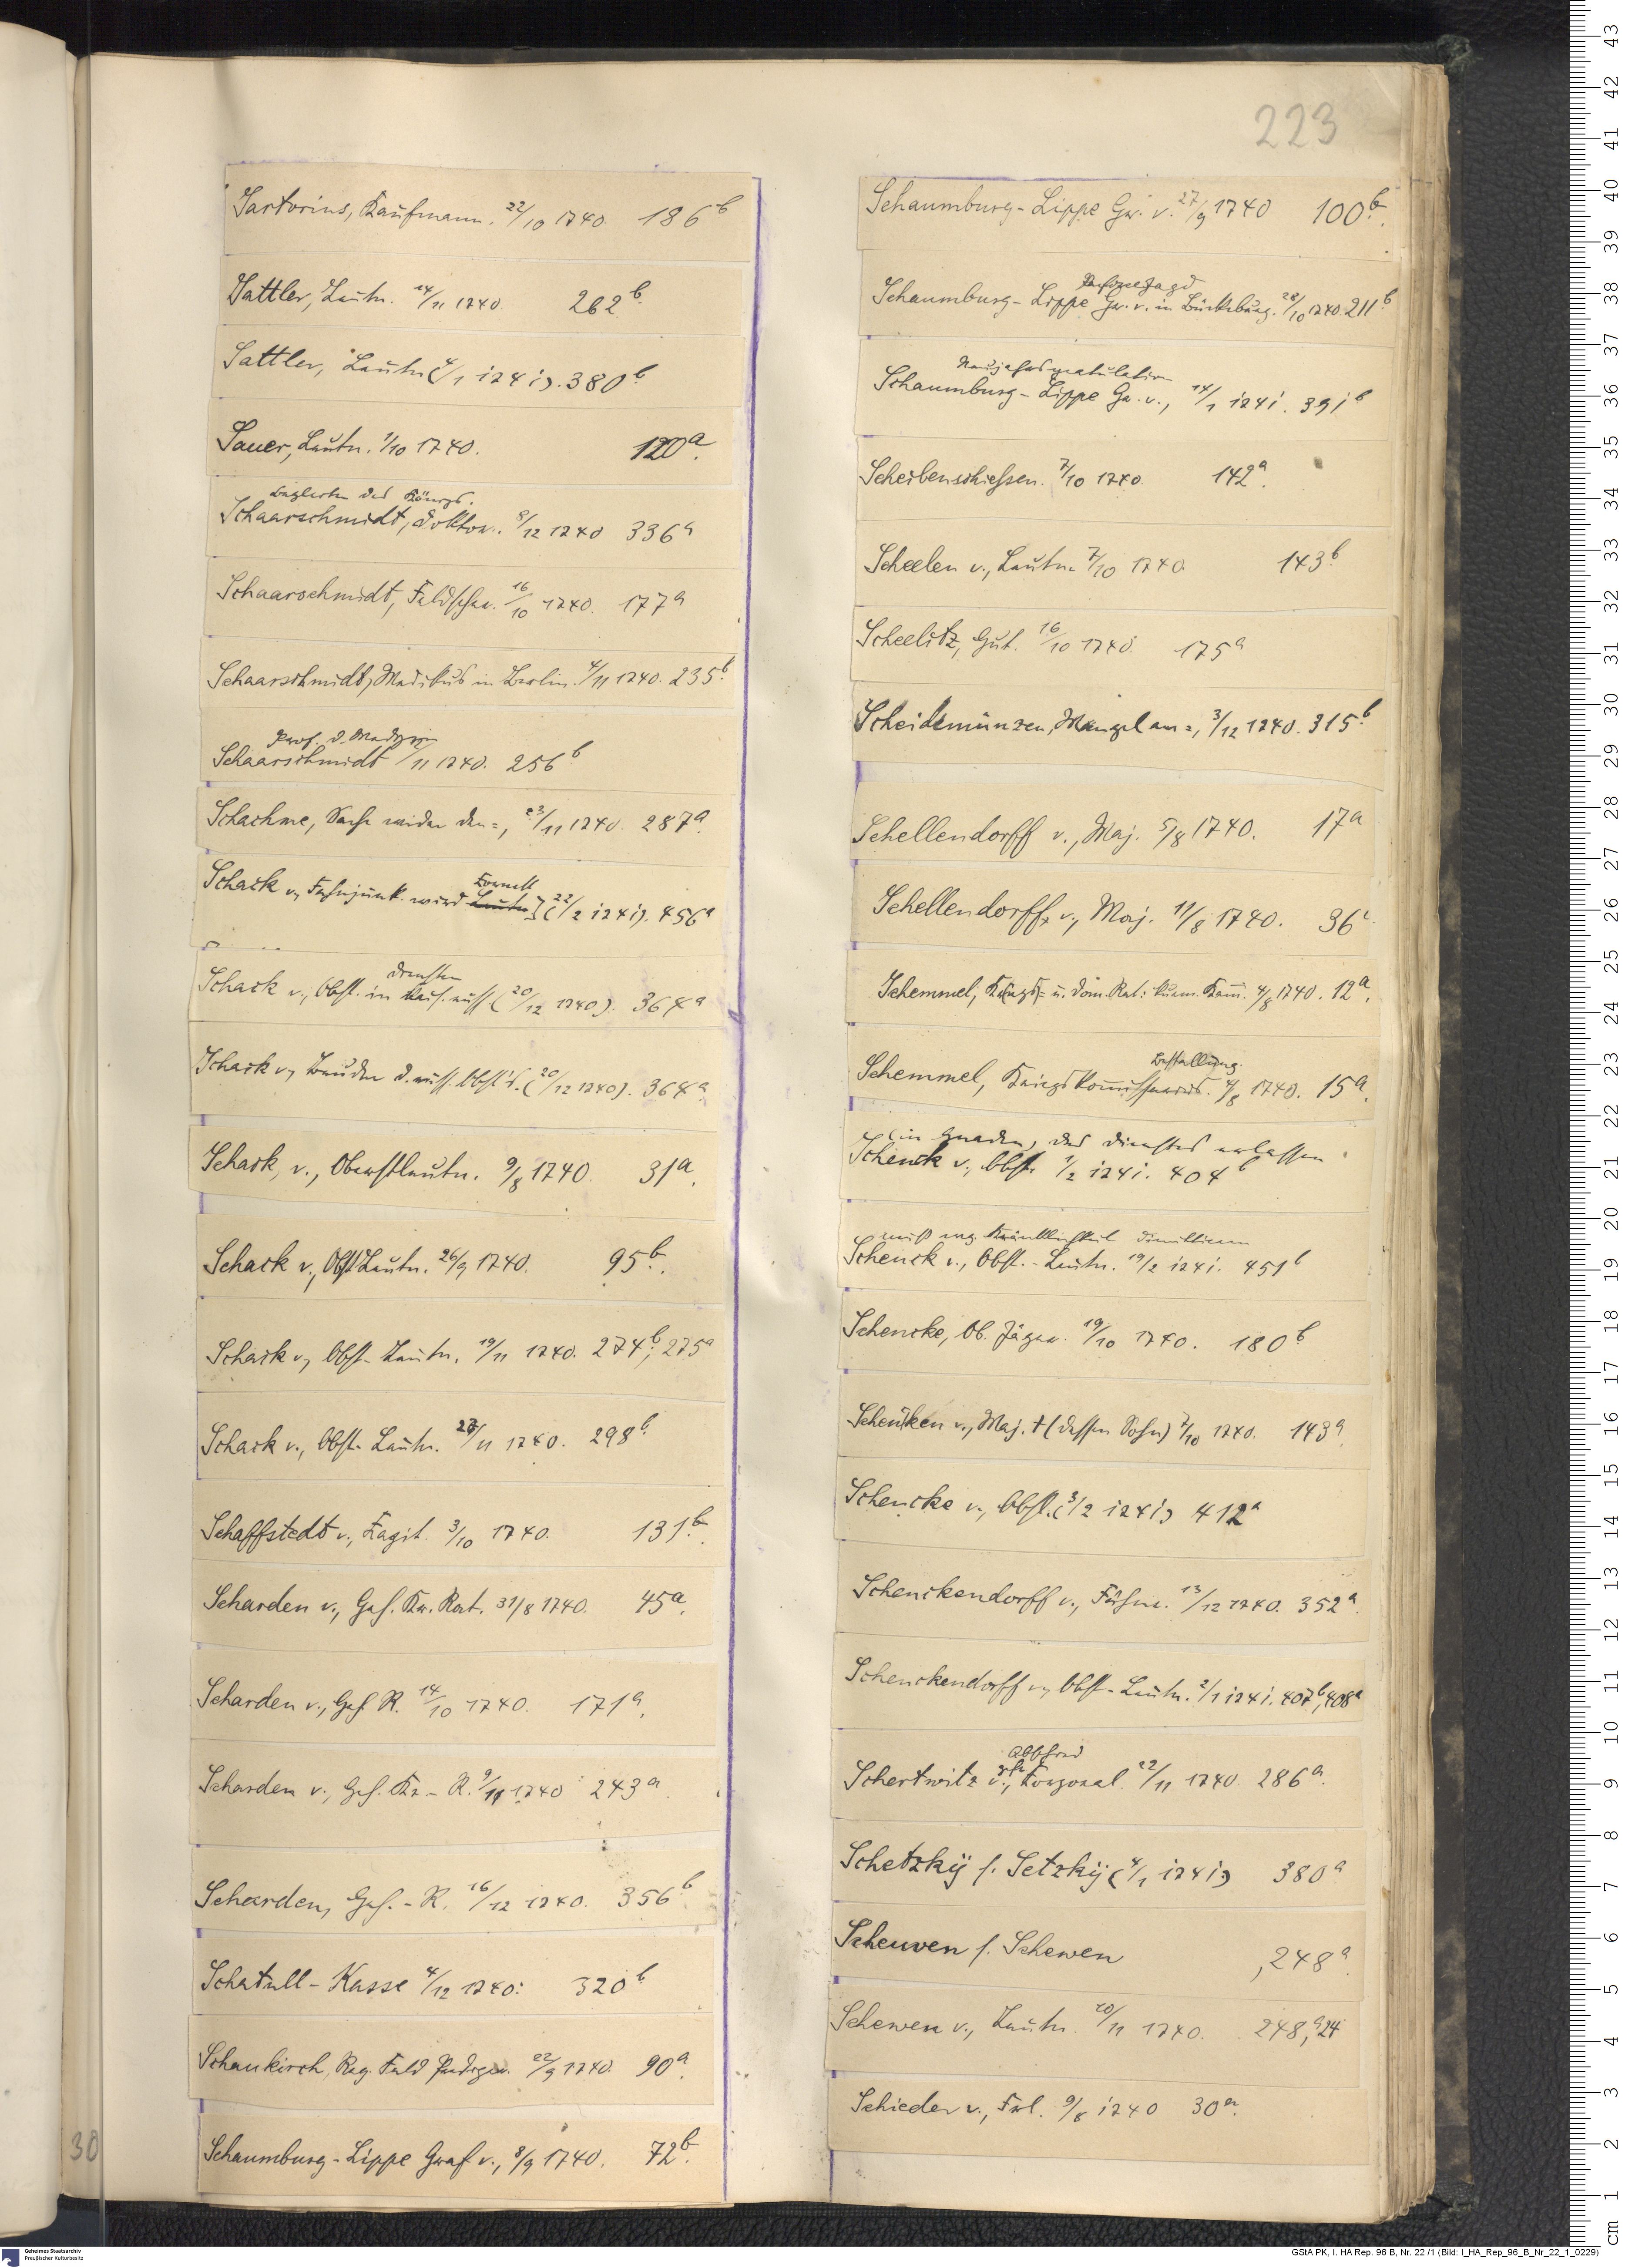 223
Sartorius, Kaufmann. 22/10 1740. 186b
Sattler, Leutn. 14/11 1740. 262b.
Sattler, Leutn (4/1 1741). 380b
Sauer, Leutn. 1/10 1740. 120a.
Begleiter des Königs.
Schaarschmidt, Doktor. 8/12 1740 336a
Schaarschmidt, Feldscher. 16/10 1740. 177a
Schaarschmidt, Medikus in Berlin. 4/11 1740. 235b.
Prof. d. Medizin
Schaarschmidt /11 1740. 256b
Schachme, Sache wider den =, 23/11 1740. 287a.
Kornett
Schack v., Fahnjunk. wird Leutn] (22/2 1741). 456a
Diensten
Schack v., Obst. in kais. russ. (20/12 1740). 364a
Schack v., Bruder d. russ. Obst's. (20/12 1740). 364a.
Schack, v., Oberstleutn. 9/8 1740. 31a.
Schack v., Obstleutn. 26/9 1740. 95b.
Schack v., Obst-Leutn. 19/11 1740. 274b, 275a
Schack v., Obst-Leutn. 27/11 1740. 298b.
Schaffstedt v., Kapit. 3/10 1740. 131b.
Scharden v., Geh. Kr. Rat. 31/8 1740. 45a.
Scharden v., Geh R. 14/10 1740. 171a.
Scharden v., Geh. Kr-R. 9/11 1740 243a.
Scharden, Geh.-R. 16/12 1740. 356b
Schatull-Kasse 4/12 1740: 320b
Schaukirch, Reg. Feld Prediger. 22/9 1740. 90a.
Schaumburg-Lippe Graf v., 8/9 1740. 72b.
Schaumburg-Lippe Gr. v. 27/9 1740 100b.
Schaumburg-Lippe Gr. v. in Bückeburg. 28/10 1740. 211b
Neujahrsgratulation
Schaumburg-Lippe Gr. v., 14/1 1741. 391b
Scheibenschiessen. 7/10 1740. 142a.
Scheelen v., Leutn. 7/10 1740. 143b.
Scheelitz, Gut. 16/10 1740. 175a
Scheidemünzen, Mangel an =, 3/12 1740. 315b.
Schellendorff v., Maj. 5/8 1740. 17a
Schellendorff, v., Maj. 11/8 1740. 36
Schemmel, Kriegs= u. Dom. Rat: kurm. Kam. 4/8 1740. 12a.
Bestallung.
Schemmel, Kriegskommissarius. 4/8 1740. 15a.
(in Gnaden, des Dienstes erlassen
Schenck v., Obst. 1/2 1741. 404b
muß weg. Kränklichkeit dimittieren
Schenck v., Obst.-Leutn. 19/2 1741. 451b
Schencke, Ob. Jäger. 19/10 1740. 180b
Schencken v., Maj. † (dessen Sohn) 7/10 1740. 143a.
Schencke v., Obst. (3/2 1741) 412a
Schenckendorff v., Fähnr. 13/12 1740. 352a.
Schenckendorff v., Obst-Leutn. 2/1 1741. 407b, 408a
Abschied
Schertwitz v., Korporal. 22/11 1740. 286a.
Schetzkÿ s. Setzkÿ (4/1 1741) 380a
Scheuven s. Schewen , 248a.
Schewen v., Leutn. 10/11 1740. 248,a 24
Schieder v., Frl. 9/8 1740 30a.
30
Geheimes Staatsarchiv
Preußischer Kulturbesitz
GStA PK, I. HA Rep. 96 B, Nr. 22 /1 (Bild: I_HA_Rep_96_B_Nr_22_1_0229)